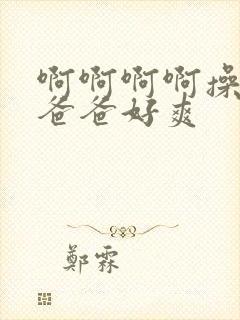 啊啊啊啊操
爸爸好爽
鄭霖